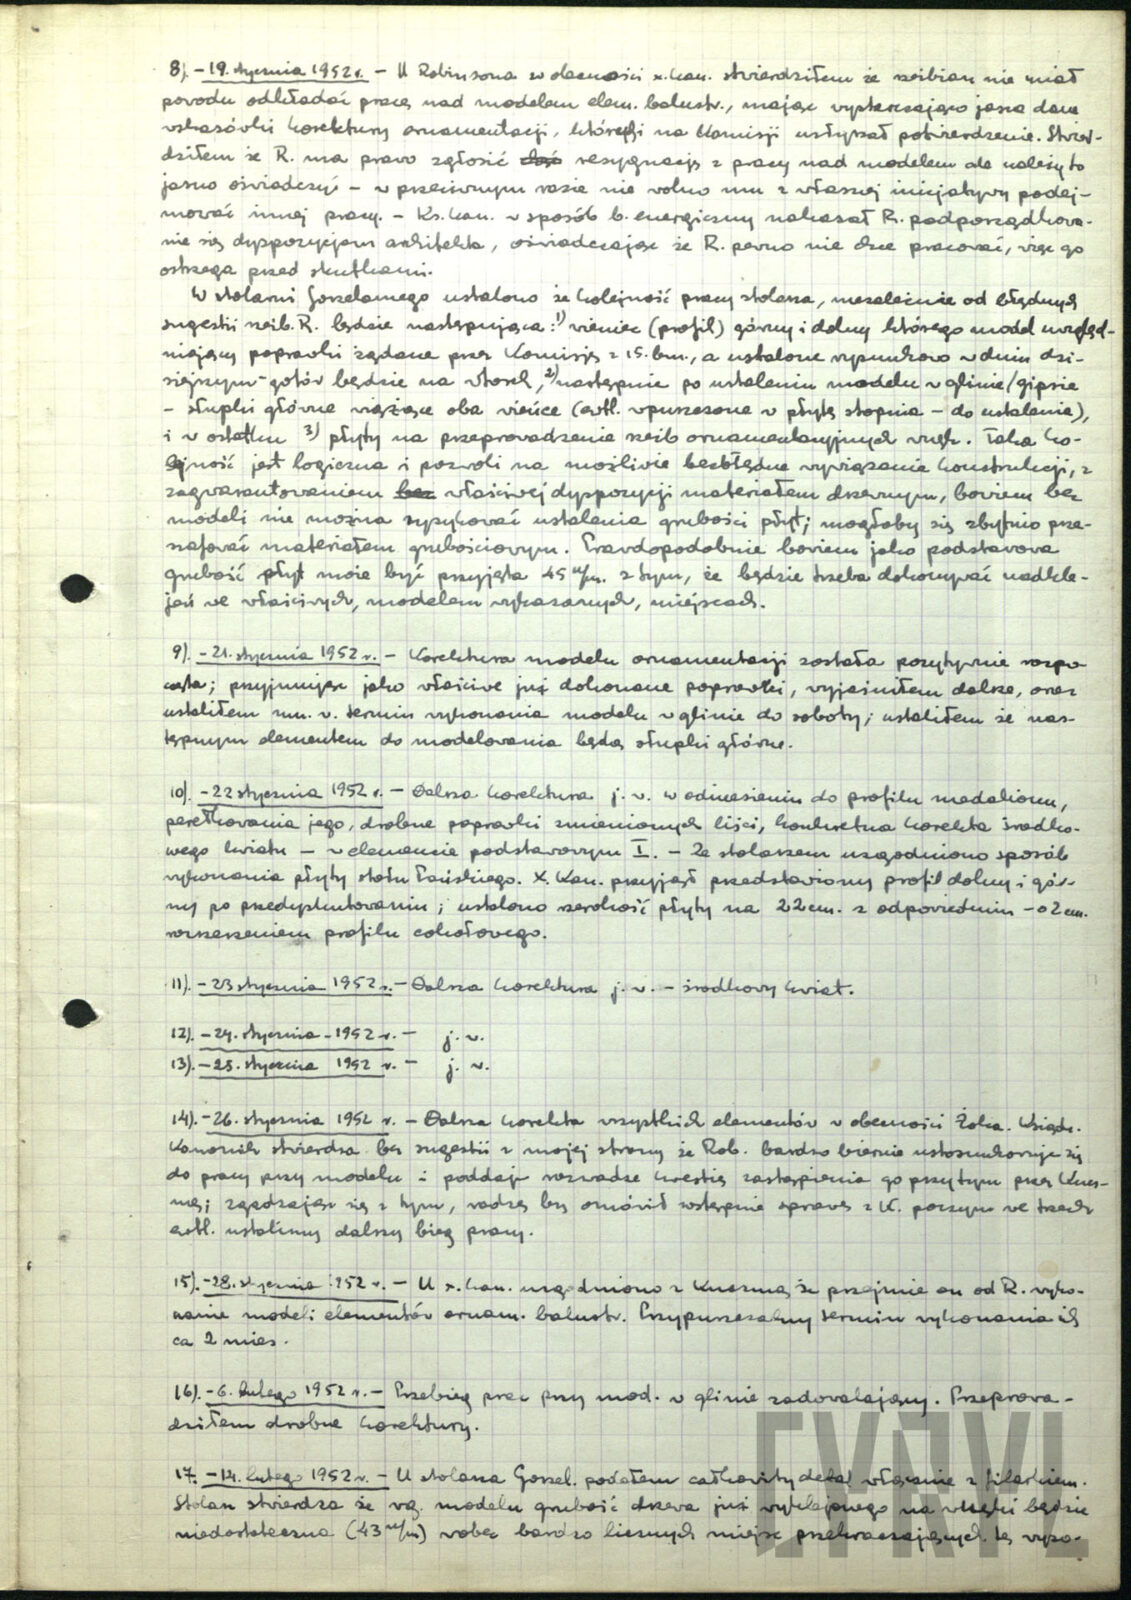 8). - 19. stycznia 1952 r. - U Robinsona w obecności x. kan. stwierdziłem że rzeźbiarz nie miał
powodu odkładać pracę nad modelem elem. balustr., mając wystarczająco jasno dane
wskazówki korektury ornamentacji, której na Komisji usłyszał potwierdzenie. Stwier-
dziłem że R. ma prawo zgłosić rezygnację z pracy nad modelem ale należy to
jasno oświadczyć - w przeciwnym razie nie wolno mu z własnej inicjatywy podej-
mować innej pracy. - Ks. kan. w sposób b. energiczny nakazał R. podporządkowa-
nie się dyspozycjom architekta, oświadczając że R. pewno nie chce pracować, więc go
ostrzega przed skutkami.
W stolarni Gorzelanego ustalono że kolejność pracy stolarza, niezależnie od błędnych
sugestii rzeźb. R. będzie następująca: 1) wieniec (profil) górny i dolny którego model uwzględ-
niający poprawki żądane przez Komisję z 15. bm., a ustalone rysunkowo w dniu dzi-
siejszym - gotów będzie na wtorek, 2) następnie po ustaleniu modelu w glinie/gipsie
- słupki główne wiążące oba wieńce (ewtl. wpuszczone w płytę stopnia - do ustalenia),
i w ostatku 3) płyty na przeprowadzenie rzeźb ornamentacyjnych wnęk. Taka ko-
lejność jest logiczna i pozwoli na możliwie bezbłędne wywiązanie konstrukcji, z
zagwarantowaniem właściwej dyspozycji materiałem drzewnym, bowiem bez
modeli nie można ryzykować ustalenia grubości płyt; mogłoby się zbytnio sza-
rafować materiałem grubościowym. Prawdopodobnie bowiem jako podstawowa
grubość płyt może być przyjęta 45 m/m. z tym, że będzie trzeba dokonywać nadkle-
jeń we właściwych, modelem wykazanych, miejscach.
9). - 21. stycznia 1952 r. - Korektura modelu ornamentacji została pozytywnie rozpo-
częta; przyjmując jako właściwe już dokonane poprawki, wyjaśniłem dalsze, oraz
ustaliłem mn. w. termin wykonania modelu w glinie do soboty; ustaliłem że nas-
tępnym elementem do modelowania będą słupki główne.
10). - 22 stycznia 1952 r. - Dalsza korektura j. w. w odniesieniu do profilu medalionu,
perełkowania jego, drobne poprawki zmienionych liści, konkretna korekta środko-
wego kwiatu - w elemencie podstawowym I. - Ze stolarzem uzgodniono sposób
wykonania płyty stołu Pańskiego. X. Kan. przyjął przedstawiony profil dolny i gór-
ny po przedyskutowaniu; ustalono szerokość płyty na 22 cm. z odpowiednim - o 2 cm.
rozszerzeniem profilu cokołowego.
11). - 23 stycznia 1952 r. - Dalsza korektura j. w. - środkowy kwiat.
12). - 24. stycznia - 1952 r. - j. w.
13). - 25. stycznia 1952 r. - j. w.
14). - 26. stycznia 1952 r. - Dalsza korekta wszystkich elementów w obecności Żoka. Ksiądz.
Kanonik stwierdza bez sugestii z mojej strony że Rob. bardzo biernie ustosunkowuje się
do pracy przy modelu i poddaje rozwadze kwestię zastąpienia go przy tym przez Kucz-
mę; zgadzając się z tym, radzę by omówił wstępnie sprawę z K. poczym we trzech
ewtl. ustalimy dalszy bieg pracy.
15). - 28. stycznia 1952 r. - U x. kan. uzgodniono z Kuczmą że przejmie on od R. wyko-
nanie modeli elementów ornam. balustr. Przypuszczalny termin wykonania ich
ca 2 mies.
16). - 6. lutego 1952 r. - Przebieg prac przy mod. w glinie zadowalający. Przeprowa-
dziłem drobne korektury.
17. - 14. lutego 1952 r. - U stolarza Gorzel. podałem całkowity detal włącznie z filarkiem.
Stolarz stwierdza że wg. modelu grubość drzewa już wyklejonego na wnęki będzie
niedostateczna (43 m/m) wobec bardzo licznych miejsc przekraczających tę wyso-